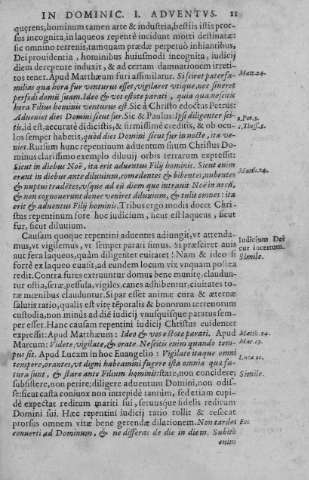 IN DOMINIC. I. ADVENTVS. 11
quęrens, hominum tamen arte & industria, bestijs istis pror-
sus incognita, in laqueos repentè incidunt morti destinatæ:
sic omnino terrenis, tamquam prædæ perpetuò inhiantibus,
Dei prouidentia, hominibus huiusmodi incognita, iudicij
diem derepente induxit, & ad certam damnationem irreti-
tos tenet. Apud Matthæum furi assimilatur. Si sciret paterfa-
milias qua hora fur venturus esset, vigilaret vtique, nec sineret
perfodi domũ suam. Ideo & vos estote parati, quia qua nescitis
hora Filius hominis venturus est. Sic à Christo edoctus Petrus:
Adueniet dies Domini sicut fur. Sic & Paulus: Ipsi diligenter sci-
tis, id est, accuratè didicistis, & firmissimè creditis, & ob ocu-
los semper habetis, quòd dies Domini sicut fur in nocte, ita ve-
niet. Rursum hunc repentinum aduentum suum Christus Do-
minus clarissimo exemplo diluuij orbis terrarum expressit:
Sicut in diebus Noë, ita erit aduentus Filij hominis. Sicut enim
erant in diebus ante diluuium, comedentes & bibentes, nubentes
& nuptui tradētes, vsque ad eū diem quo intrauit Noë in arcā,
& non cognouerunt donec veniret diluuium, & tulit omnes: ita
erit & aduentus Filij hominis. Tribus ergo modis docet Chri-
stus repentinum fore hoc iudicium, sicut est laqueus, sicut
fur, sicut diluuium.
Causam quoque repentini aduentus adiungit, vt attenda-
mus, vt vigilemus, vt semper parati simus. Si præsciret auis
aut fera laqueos, quàm diligenter cauitaret! Nam & ideo si
fortè ex laqueo euasit, ad eundem locum vix vnquam postea
redit. Contra fures extruuntur domus bene munitæ, clauduntur
ostia, seræ, pessula, vigiles, canes adhibentur, ciuitates to-
tæ mœnibus clauduntur. Sit par esset animæ cura & æternæ
salutis ratio, quanta est vitę tēporalis & bonorum terrenorum
custodia, non minùs ad diē iudicij vnusquisque paratus sem-
per esset. Hanc causam repentini iudicij Christus euidenter
expressit: Apud Matthæum: Ideo & vos estote parati. Apud
Marcum: Videte, vigilate, & orate. Nescitis enim quando tem-
pus sit. Apud Lucam in hoc Euangelio: Vigilate itaque omni
tempore, orantes, vt digni habeamini fugere ista omnia quæ fu-
tura sunt, & stare ante Filium hominis: stare, non concidere;
subsistere, non perire; diligere aduentum Domini, non odis-
se: sicut casta coniunx non intrepidè tannùm, sed etiam cupi-
dè expectat reditum mariti sui, seruusque fidelis reditum
Domini sui. Hæc repentini iudicij ratio tollit & resecat
prorsus omnem vitæ bene gerendæ dilationem. Non tardes
conuerti ad Dominum, & ne differas de die in diem. Subitò
enim
Mat. 24.
2. Pet. 3.
1. Thess. 5.
Matth. 24.
Iudicium Dei
cur incertum.
Simile.
Matth. 24.
Mar. 13.
Luca 21.
Simile.